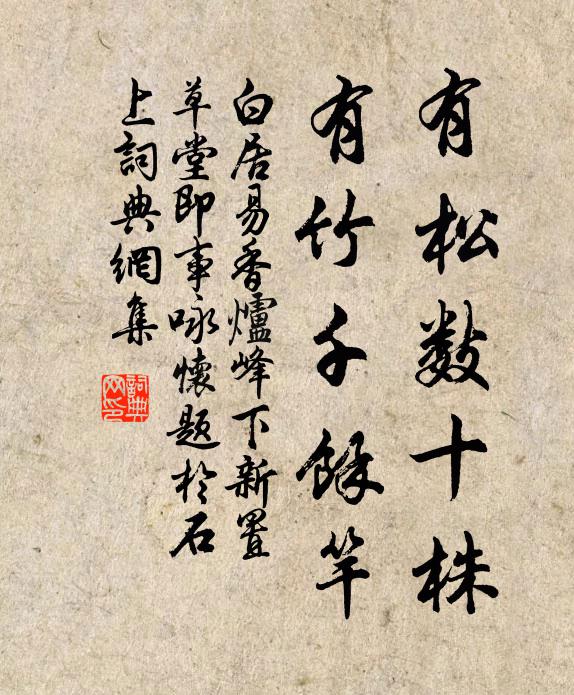 有松數十株
有竹千餘竿
白居易香爐峰下新置
草堂即事咏懷題於石
上詞典網集
詞典
网印